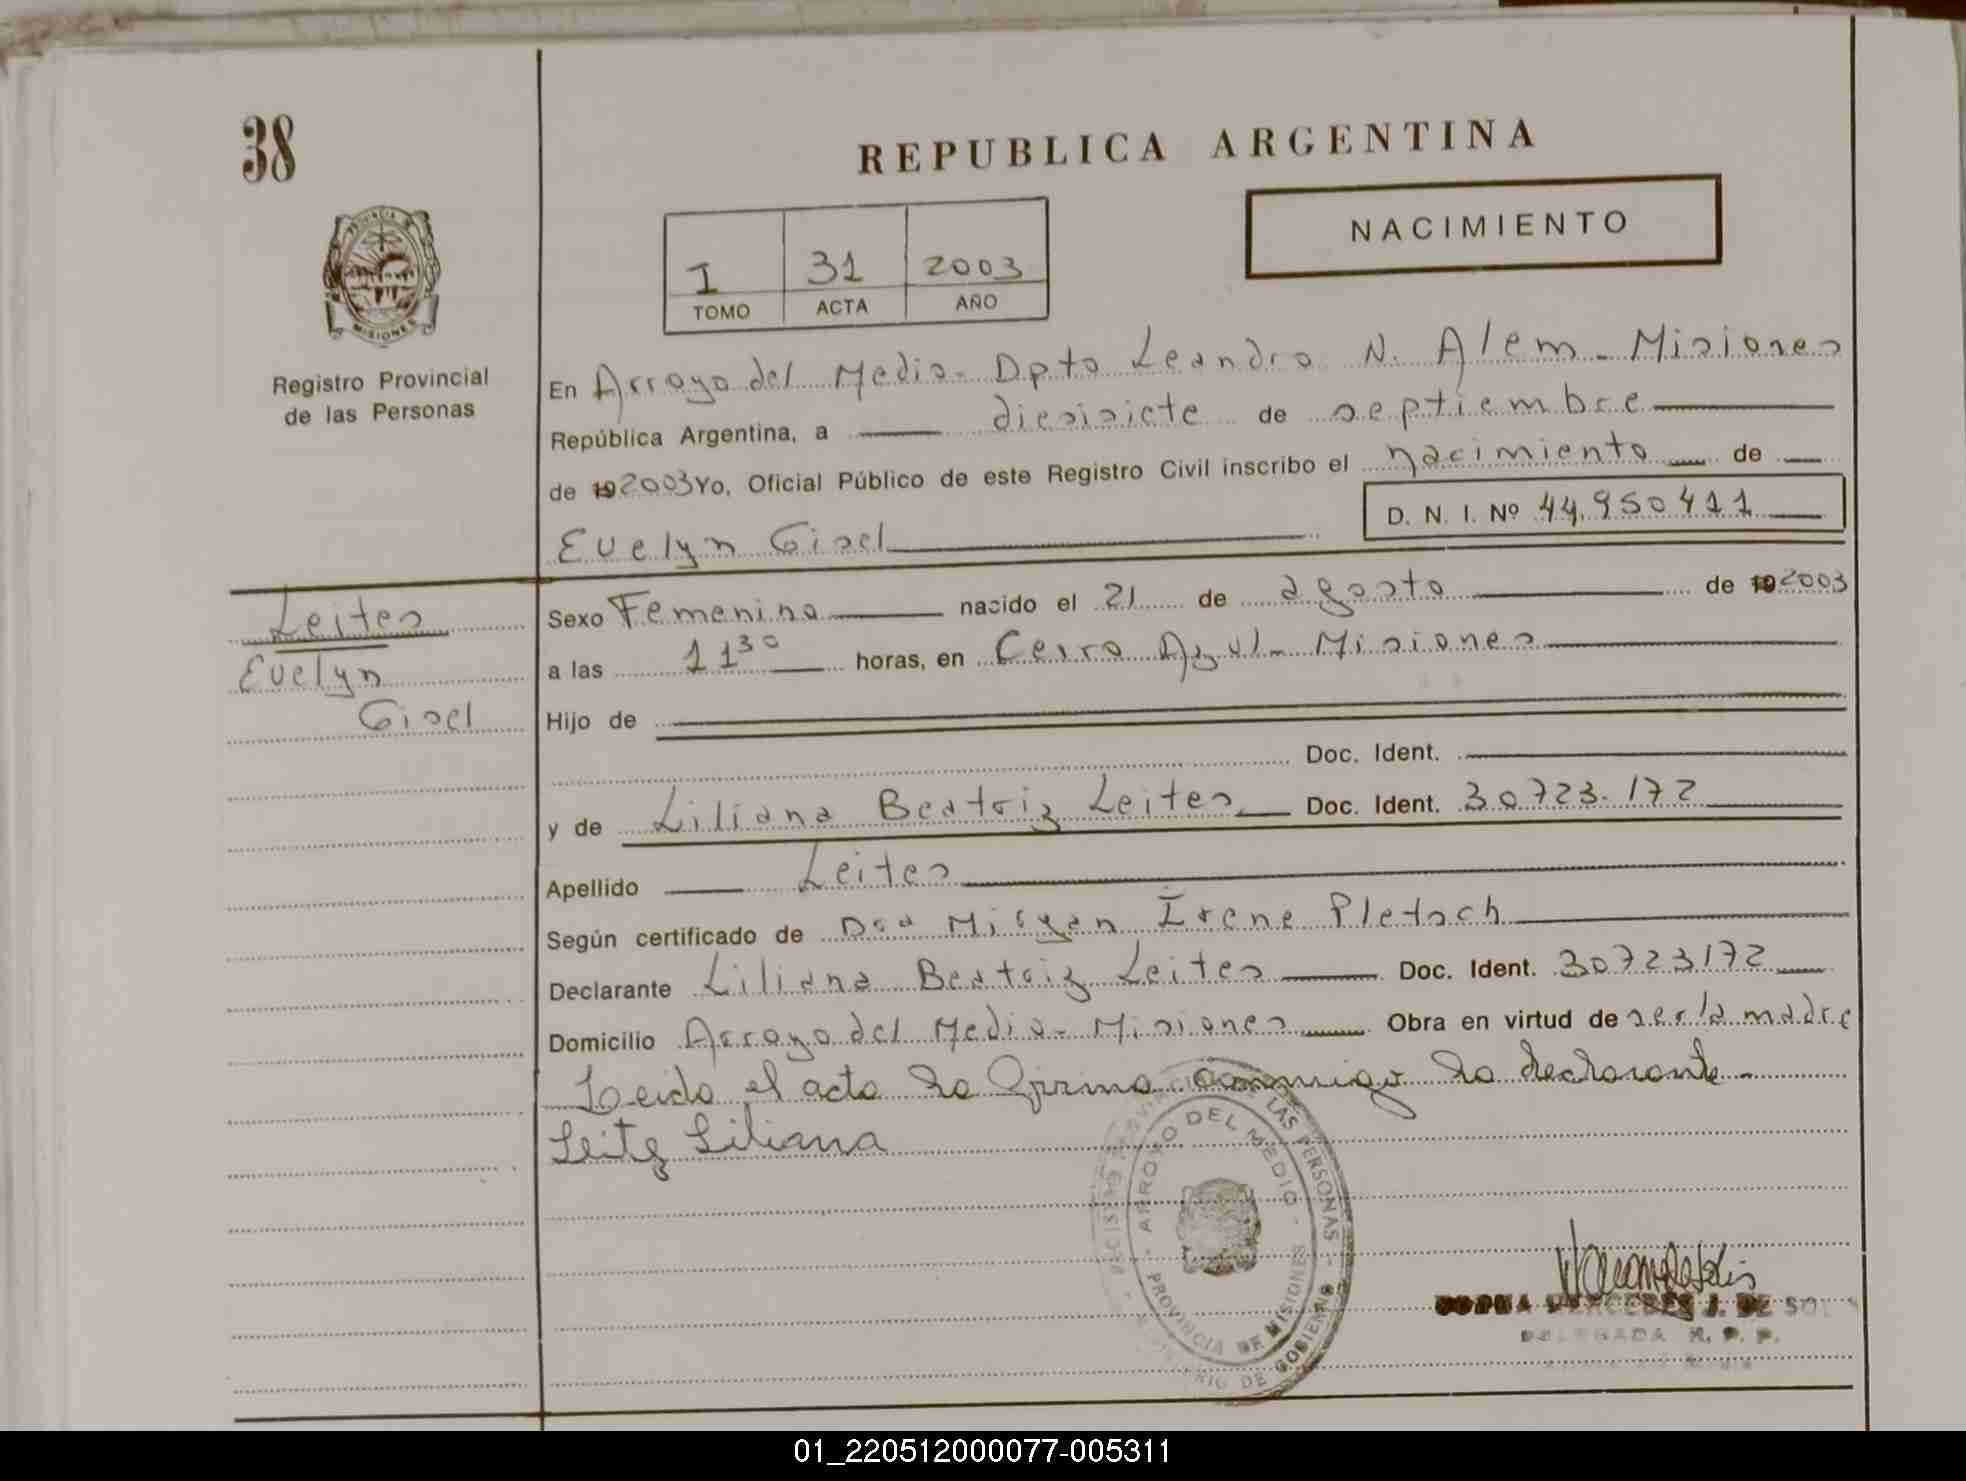 38
REPUBLICA ARGENTINA
NACIMIENTO
I 31 2003
TOMO ACTA AÑO
PROVINCIA DE
MISIONES
Registro Provincial
de las Personas
En Arroyo del Medio - Dpto Leandro N. Alem - Misiones
República Argentina, a diesisiete de septiembre
de 19 2003 Yo, Oficial Público de este Registro Civil inscribo el nacimiento de
D. N. I. Nº 44.950411
Evelyn Gisel
Leites
Evelyn
Gisel
Sexo Femenino nacido el 21 de agosto de 19 2003
a las 11 30 horas, en Cerro Azul - Misiones
Hijo de
Doc. Ident.
y de Liliana Beatriz Leites Doc. Ident. 30723.172
Apellido Leites
Según certificado de Dra Miryan Irene Pletsch
Declarante Liliana Beatriz Leites Doc. Ident. 30723172
Domicilio Arroyo del Medio - Misiones Obra en virtud de ser la madre
Leida el acta la firma conmigo la declarante -
Leitz Liliana
DE LAS PERSONAS -
- ARROYO DEL MEDIO -
PROVINCIA DE MISIONES
DE GOBIERNO
MERCEDES J. DE
DELEGADA R. P. P.
01_220512000077-005311